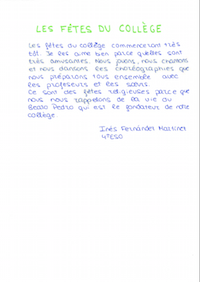 LES FÊTES DU COLLÈGE
Les fêtes du collège commenceront très
tôt. Je les aime bien parce qu'elles sont
très amusantes. Nous jouons, nous chantons
et nous dansons les chorégraphies que
nous préparons tous ensemble avec
les profeseurs et les sœurs.
Ce sont des fêtes religieuses parce que
nous nous rappelons de la vie du
Beato Pedro qui est le fondateur de notre
collège.
Inés Fernández Martínez
4ºESO